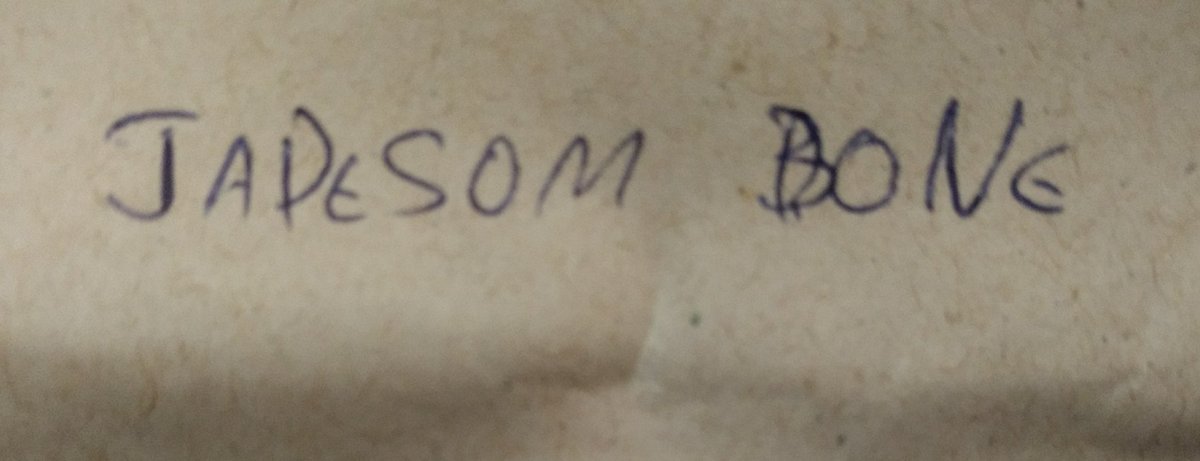 JADESOM BONE